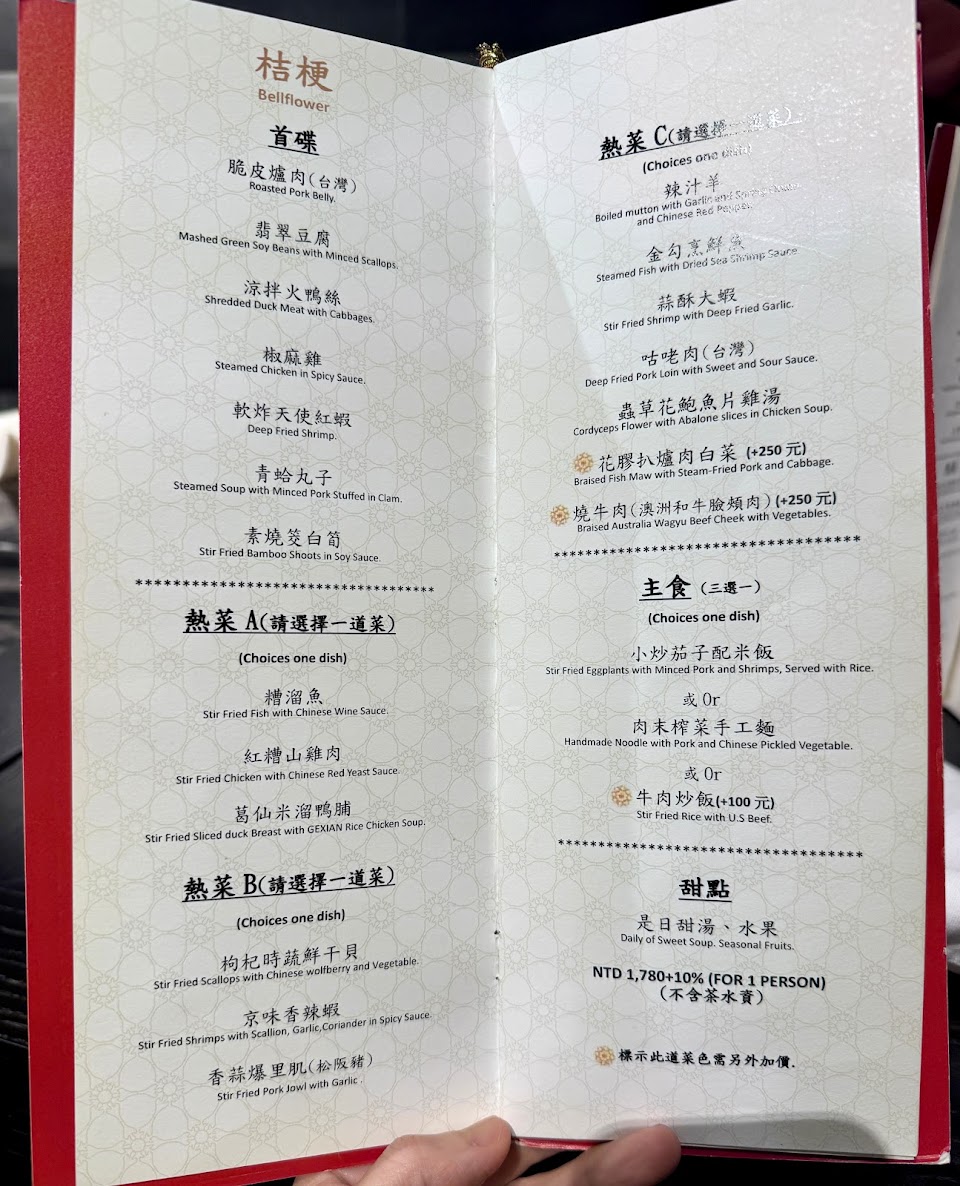 桔梗
Bellflower
首碟
脆皮爐肉(台灣)
Roasted Pork Belly.
翡翠豆腐
Mashed Green Soy Beans with Minced Scallops.
涼拌火鴨絲
Shredded Duck Meat with Cabbages.
椒麻雞
Steamed Chicken in Spicy Sauce.
軟炸天使紅蝦
Deep Fried Shrimp.
青蛤丸子
Steamed Soup with Minced Pork Stuffed in Clam.
素燒筊白筍
Stir Fried Bamboo Shoots in Soy Sauce.
**********************************
熱菜 A(請選擇一道菜)
(Choices one dish)
糟溜魚
Stir Fried Fish with Chinese Wine Sauce.
紅糟山雞肉
Stir Fried Chicken with Chinese Red Yeast Sauce.
葛仙米溜鴨脯
Stir Fried Sliced duck Breast with GEXIAN Rice Chicken Soup.
熱菜 B(請選擇一道菜)
(Choices one dish)
枸杞時蔬鮮干貝
Stir Fried Scallops with Chinese wolfberry and Vegetable.
京味香辣蝦
Stir Fried Shrimps with Scallion, Garlic,Coriander in Spicy Sauce.
香蒜爆里肌(松阪豬)
Stir Fried Pork Jowl with Garlic .
熱菜 C(請選擇一道菜)
(Choices one dish)
辣汁羊
Boiled mutton with Garlic and
and Chinese Red Pepper.
金勾烹鮮魚
Steamed Fish with Dried Sea Shrimp Sauce
蒜酥大蝦
Stir Fried Shrimp with Deep Fried Garlic.
咕咾肉(台灣)
Deep Fried Pork Loin with Sweet and Sour Sauce.
蟲草花鮑魚片雞湯
Cordyceps Flower with Abalone slices in Chicken Soup.
花膠扒爐肉白菜 (+250 元)
Braised Fish Maw with Steam-Fried Pork and Cabbage.
燒牛肉(澳洲和牛臉頰肉)(+250 元)
Braised Australia Wagyu Beef Cheek with Vegetables.
***********************************
主食 (三選一)
(Choices one dish)
小炒茄子配米飯
Stir Fried Eggplants with Minced Pork and Shrimps, Served with Rice.
或 Or
肉末榨菜手工麵
Handmade Noodle with Pork and Chinese Pickled Vegetable.
或 Or
牛肉炒飯(+100 元)
Stir Fried Rice with U.S Beef.
***********************************
甜點
是日甜湯、水果
Daily of Sweet Soup. Seasonal Fruits.
NTD 1,780+10% (FOR 1 PERSON)
(不含茶水資)
標示此道菜色需另外加價.